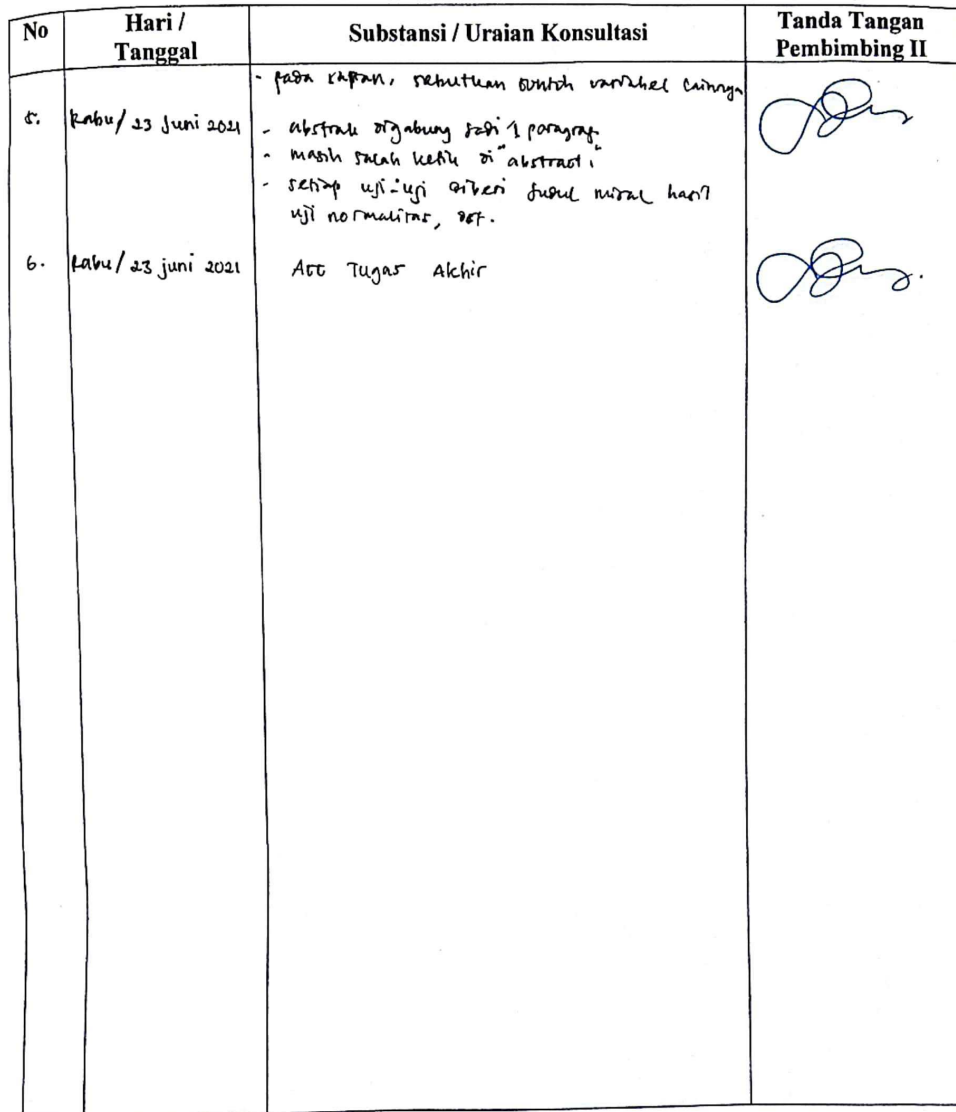 No
Hari /
Tanggal
Substansi / Uraian Konsultasi
Tanda Tangan
Pembimbing II
- pada saran, sebutkan contoh variabel lainnya
5. Rabu/ 23 Juni 2021
- abstrak digabung jadi 1 paragraf
- masih salah ketik di "abstract"
- setiap uji-uji diberi judul misal hasil
uji normalitas, dst.
6. Rabu/ 23 juni 2021 Acc Tugas Akhir